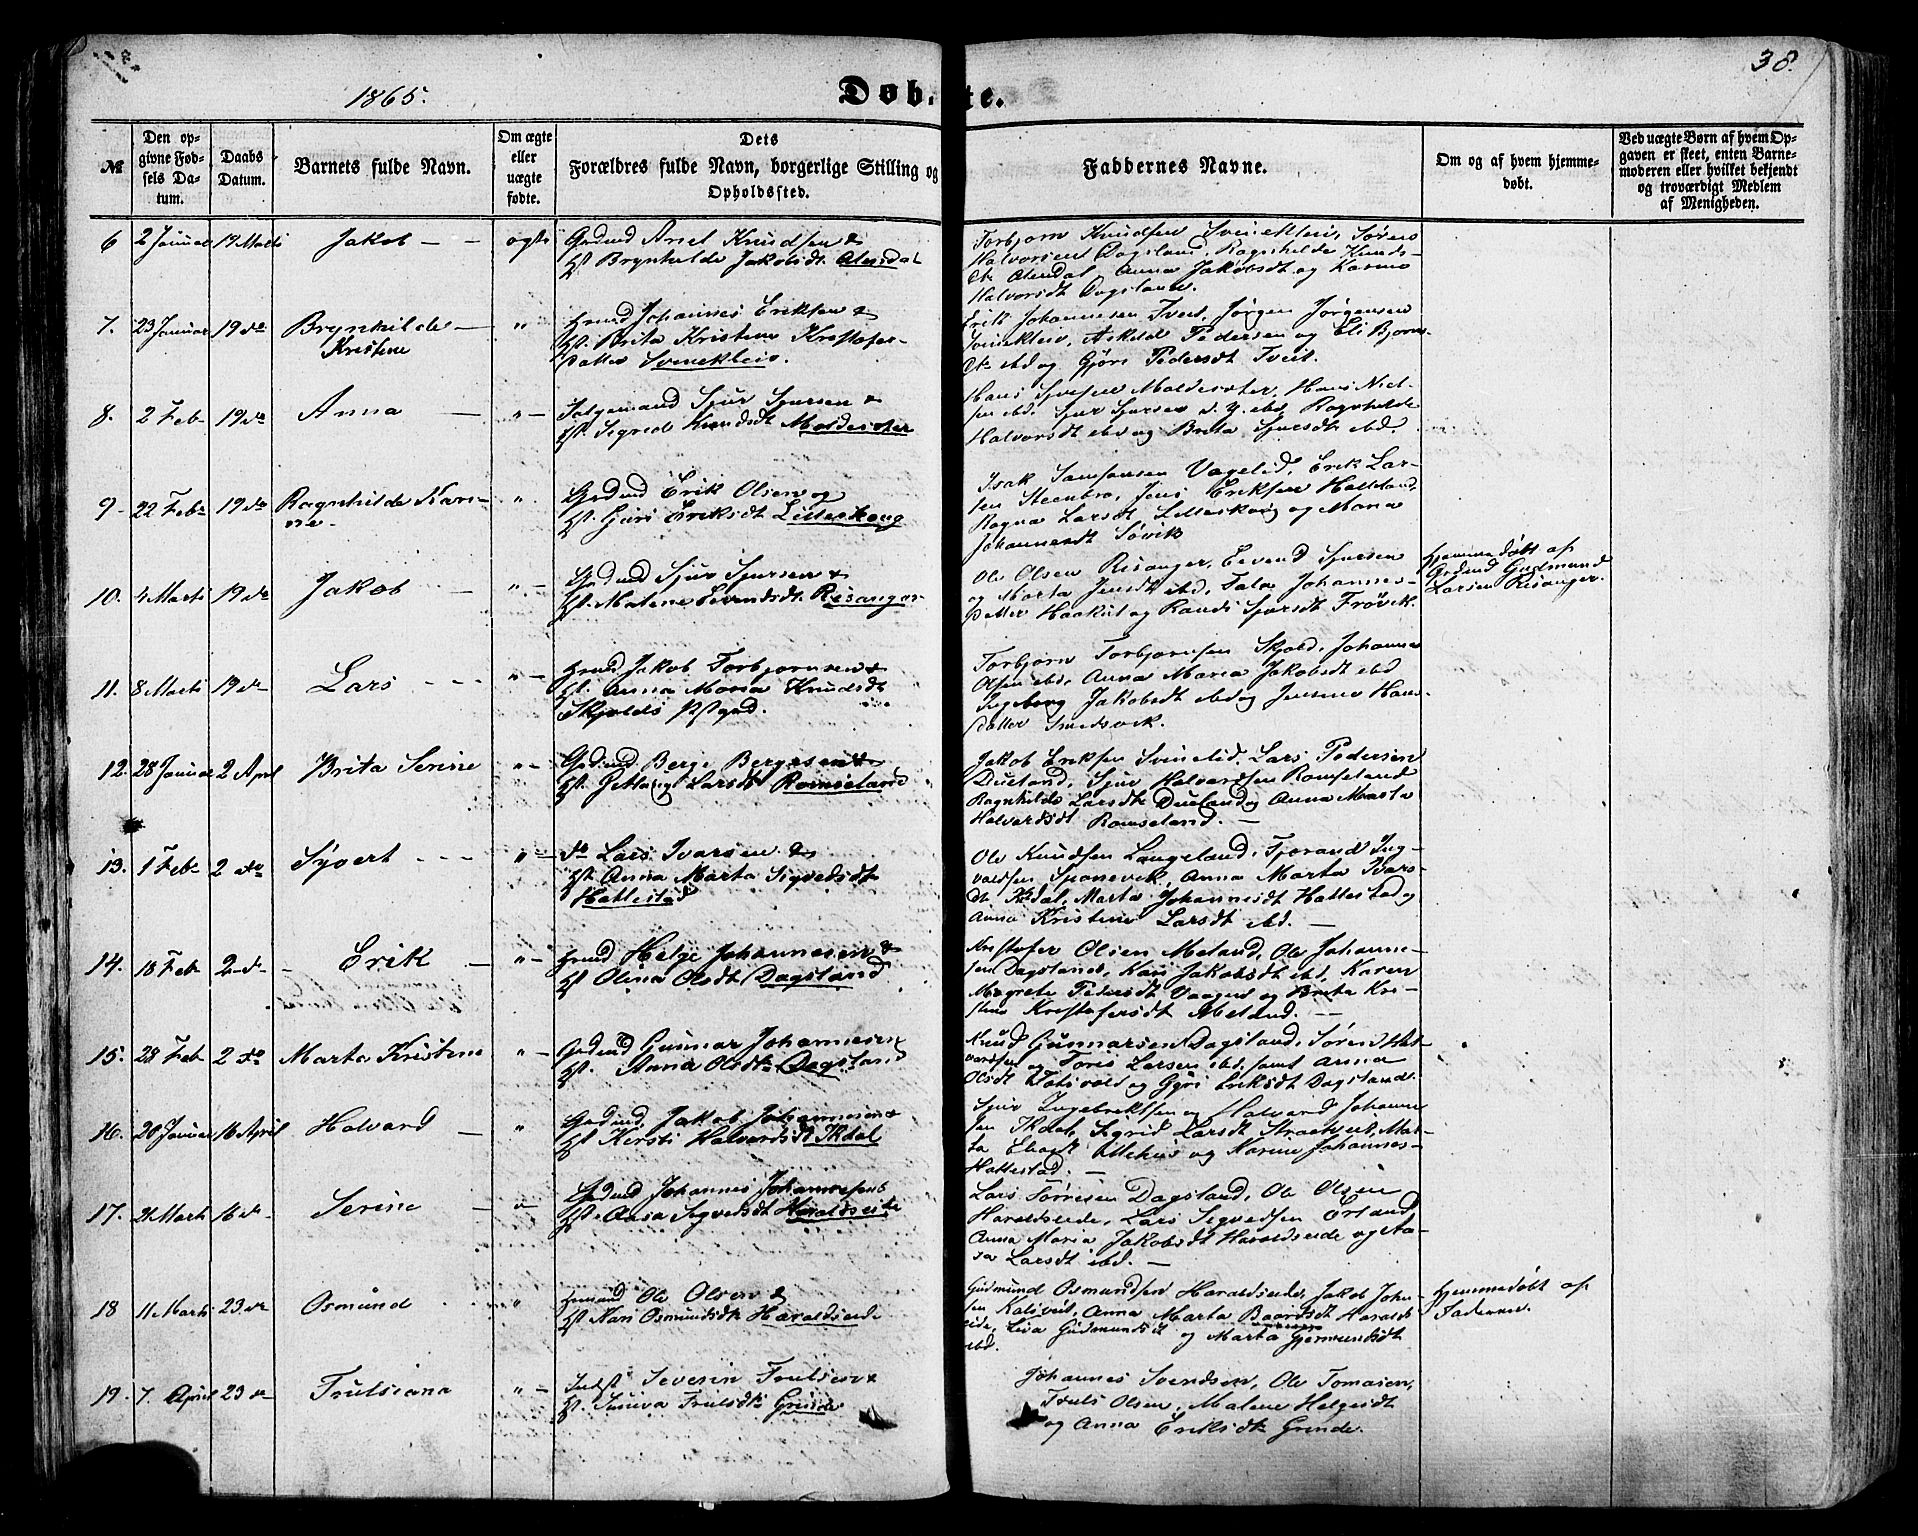 38.
1865.
Døbte.
№
Den opgivne Fødsels Datum.
Daabs Datum.
Barnets fulde Navn.
Om ægte eller uægte fødte.
Dets Forældres fulde Navn, borgerlige Stilling og Opholdssted.
Faddernes Navne.
Om og af hvem hjemmedøbt.
Ved uægte Børn af hvem Opgaven er skeet, enten Barnemoderen eller hvilket bekjendt og troværdigt Medlem af Menigheden.
6 2 Januar 19 Marts Jakob ægte
Knudsen &
Hst. Brynhilde Jakobsdt.
Torbjørn Knudsen
Halvorsen Dagsland, Ragnhilde Knuds-
Anna Jakobsdt og Karine
Halvorsdt Dagsland.
7. 23 Januar 19 do Brynhilde
Kristene
Hmd Johannes Eriksen &
Hst. Brita Kristene Kristofer-
datter Svinekleiv.
Erik Johannesen Tveit, Jørgen Jørgensen
Svinekleiv, Askild Pedersen og Eli Bjørns-
dt. ibd og Gjøri Pedersdt Tveit.
8. 2 Feb 19 do Anna
Sjur Sjursen &
Hst. Sigrid Knudsdt
Hans Niel-
sen ibd. Sjur Sjursen d. y. ibd, Ragnhilde
Halvorsdt ibd og Brita Sjursdt ibd.
9 22 Febr 19 do Ragnhilde Kari-
ne
Grdmd Erik Olsen og
Hst. Guri Eriksdt Lilleskoug
Isak Samsonsen Vagelid, Erik Lar-
sen Steenbro, Jens Eriksen
Ragna Larsdt Lilleskoug og Maria
Johannesdt Søvik
10. 4 Marts 19 do Jakob
Grdmd Sjur Sjursen &
Hst. Malene Eevendsdt. Risanger
Ole Olsen Risanger, Eevend Sjursen
og Marta Jensdt ibd, Johannes-
datter og Randi Sjursdt Frøvik.
Hjemmedøbt af
Grdmd Gudmund
Larsen Risanger.
11. 8 Marts 19 do Lars
Hmd Jakob Torbjørnsen &
Hst. Anna Maria Knudsdt
Skjolds Pstgrd.
Torbjørn Torbjørnsen Skjold, Johannes
Olsen ibd, Anna Maria Jakobsdt ibd
Ingeborg Jakobsdt ibd og Jensine Hans-
datter Smedsvik.
12. 28 Januar 2 April Brita Serine
Grdmd Berge Bergesen &
Hst. Larsdt Romseland
Jakob Eriksen Svinelid, Lars Pedersen
Dueland, Sjur Halvardsen Romseland
Ragnhilde Larsdt Dueland og Anna Marta
Halvardsdt Romseland.
13. 1 Feb 2 do Syvert
do Lars Ivarsen &
Hst. Anna Marta Sigvedsdt
Hattestad
Ole Knudsen Langeland, Tjorand Ing-
valdsen Sponevik, Anna Marta Ivars-
dt Marta Johannesdt Hattestad og
Anna Kristine Larsdt ibd.
14. 18 Feb 2 do Erik
Hmd Helge Johannesen &
Hst Olina Olsdt Dagsland
Kristofer Olsen Meland, Ole Johanne-
sen Dagsland, Kari Jakobsdt ibd, Karen
Magrete Pedersdt Vaagen og Brita Kri-
stine Kristofersdt Meland.
15. 28 Feb 2 do Marta Kristene
Grdmd Gunnar Johannesen &
Hst. Anna Olsdt. Dagsland
Knud Gunnarsen Dagsland, Søren Hal-
vardsen og Toris Larsen ibd, samt Anna
Olsdt og Gyri Eriksdt Dagsland.
16. 20 Januar 16 April Halvard
Grdmd Jakob Johannesen &
Hst Kersti Halvardsdt Ikdal
Sjur Ingebriktsen og Halvard Johanne-
sen Ikdal, Sigrid Larsdt Mar-
ta og Karine Johannes-
Hattestad.
17. 21 Marts 16 do Serine
Grdmd Johannes Johannesen &
Hst. Sigvedsdt Haraldseide
Lars Tørresen Dagsland, Ole Olsen
Haraldseide, Lars Sigvedsen Erland,
Anna Maria Jakobsdt Haraldseide og Aa-
sa Larsdt ibd.
18 11 Marts 23 do Osmund
Hmand Ole Olsen &
Hst. Kari Osmundsdt. Haraldseide
Gudmund Osmundsen Haraldseide, Jakob Johan-
sen Anna Marta Baardsdt Haralds-
eide, Lisa Gudmundsdt og Marta Gjermundsdt
ibd.
Hjemmedøbt af
Faderen.
19. 7. April 23 do Trulsiana
Severin Trulsen &
Hst. Truelsdt. Grinde
Johannes Svendsen, Ole Tomasen,
Truls Olsen, Malene Helgesdt
og Anna Eriksdt Grinde.